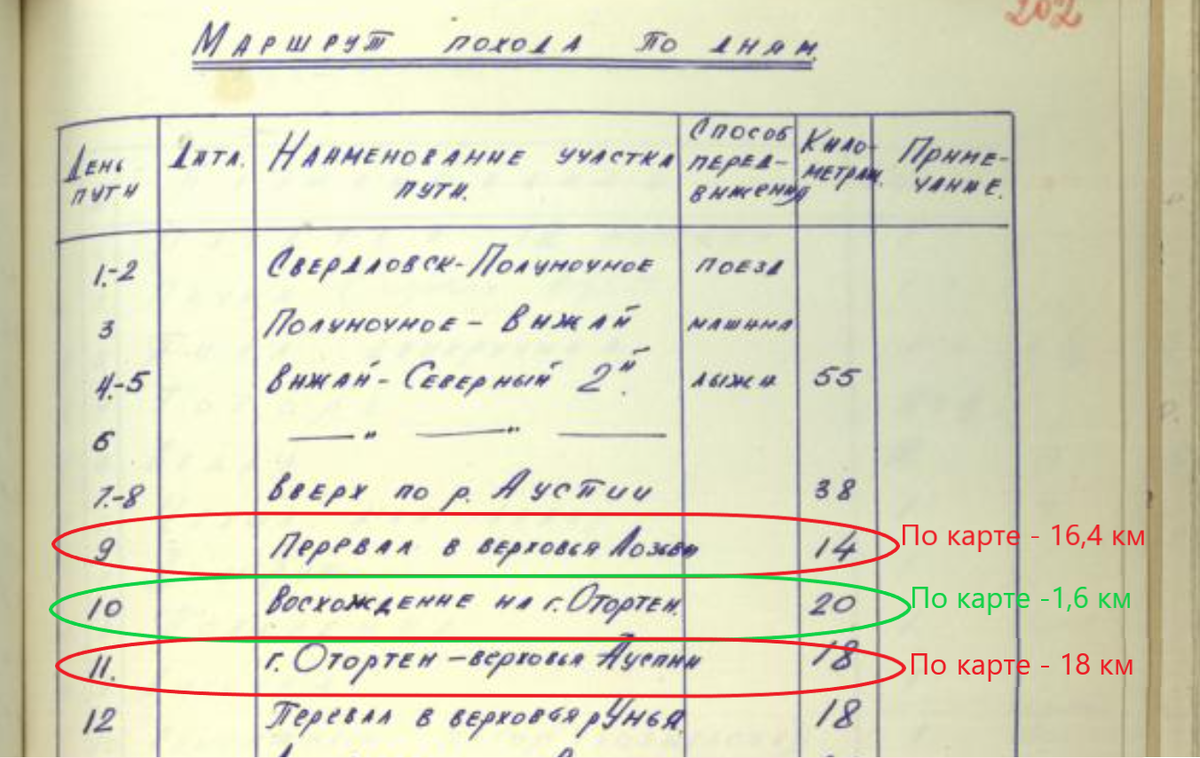 202
Маршрут похода по дням.
День пути | Дата. | Наименование участка пути. | Способ передвижения | Километраж. | Примечание.
1.-2 | Свердловск-Полуночное | поезд
3 | Полуночное - Вижай | машина
4.-5 | Вижай - Северный 2й. | лыжи | 55
6 | — " — " —
7.-8 | Вверх по р. Ауспии | 38
9 | Перевал в верховья Лозьвы | 14 | По карте - 16,4 км
10 | Восхождение на г. Отортен. | 20 | По карте -1,6 км
11. | г. Отортен - верховья Ауспии | 18 | По карте - 18 км
12 | Перевал в верховья р Унья | 18